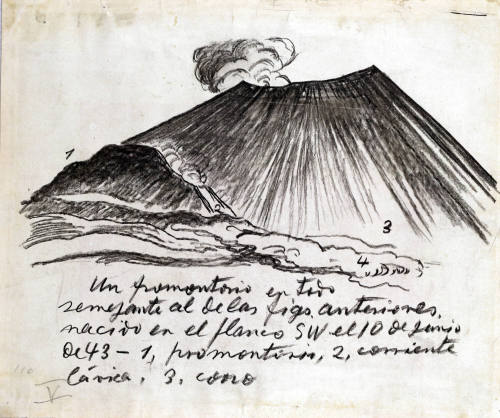 1
3
4
Un promontorio en todo
semejante al de las figs. anteriores,
nacido en el flanco SW el 10 de Junio
de 43 – 1, promontorio, 2, corriente
lávica, 3, cono
110
V